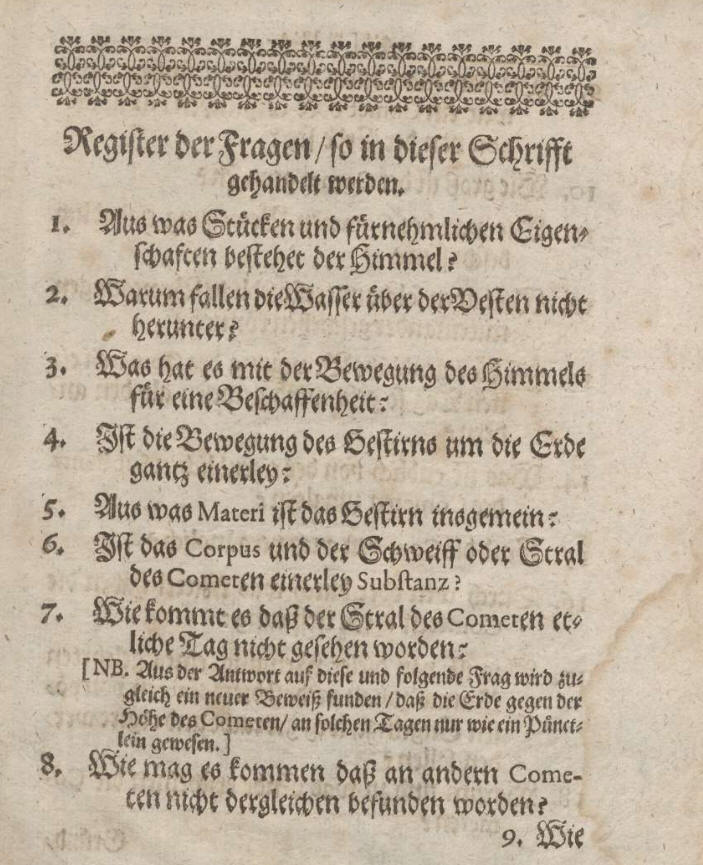 Register der Fragen / so in dieser Schrifft
gehandelt werden.
1. Aus was Stücken und fürnehmlichen Eigen-
schafften bestehet der Himmel?
2. Warum fallen die Wasser über der Vesten nicht
herunter?
3. Was hat es mit der Bewegung des Himmels
für eine Beschaffenheit?
4. Ist die Bewegung des Gestirns um die Erde
gantz einerley?
5. Aus was Materi ist das Gestirn insgemein?
6. Ist das Corpus und der Schweiff oder Stral
des Cometen einerley Substanz?
7. Wie kommt es daß der Stral des Cometen et-
liche Tag nicht gesehen worden?
[NB. Aus der Antwort auf diese und folgende Frag wird zu-
gleich ein neuer Beweiß funden / daß die Erde gegen der
Höhe des Cometen / an solchen Tagen nur wie ein Pünct-
lein gewesen.]
8. Wie mag es kommen daß an andern Come-
ten nicht dergleichen befunden worden?
9. Wie